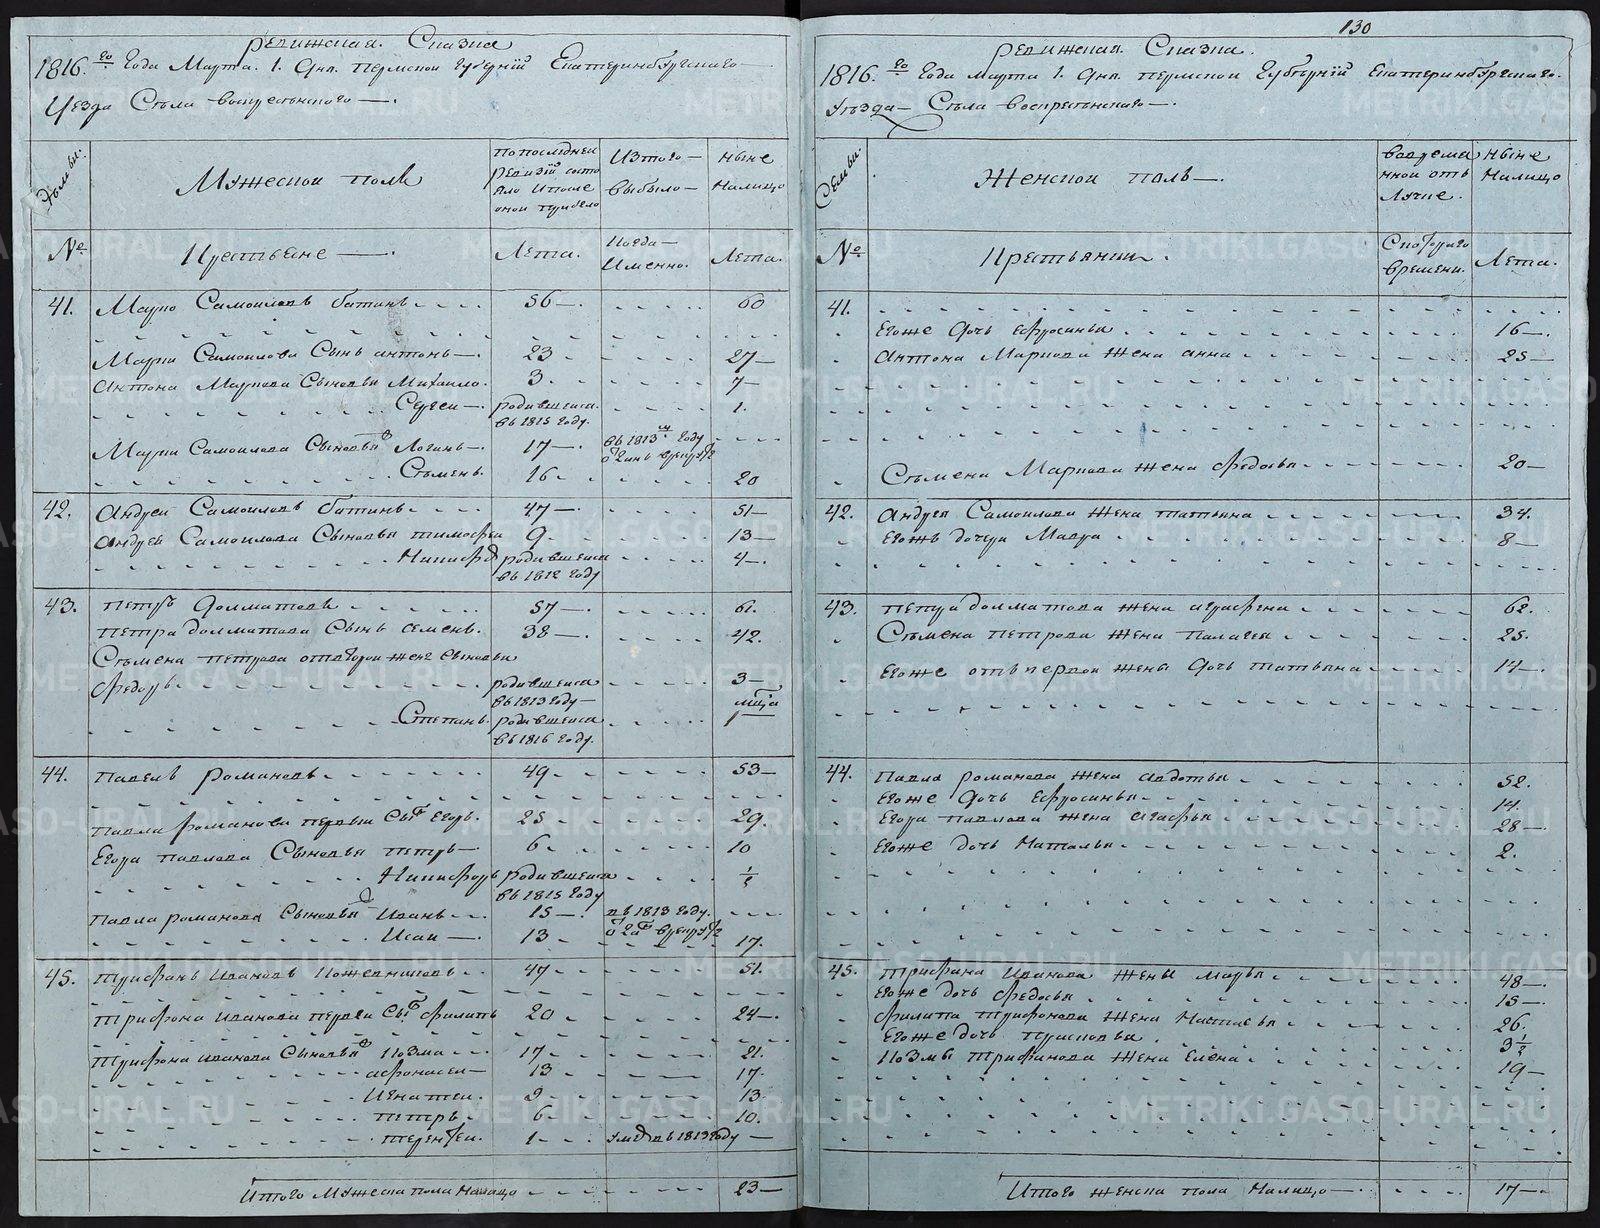 130
Ревижская Сказка
1816.го Года Марта 1. Дня. Пермской Губернïи Екатеринбургскаго
Уезда Села Воскресенского —.
Семьи.
Мужеской полъ
По последней ревизïи состояло и после оной прибыло
Изтого выбыло
Ныне налицо
№
Крестьяне —.
Лета.
Когда Именно.
Лета.
41. Марко Самоиловъ Батинъ 56 60
Марки Самоилова Сынъ антонъ 23 27
Антона Маркова Сыновья Михаило. 3. 7
Сергеи родившеися въ 1815 году. 1.
Марки Самоилова Сыновья Логинъ 17 въ 1813м году
Семенъ. 16 20
42. Андреи Самоиловъ Батинъ 47 51
Андрей Самоилова Сыновья тимофеи 9 13
Никифоръ родившеися въ 1812 году 4
43. Петръ Долматовъ 57 61.
Петра долматова Сынъ семенъ. 38 42.
Семена Петрова отвторои жене Сыновья
Федоръ родившеися въ 1813 году 3
Степанъ родившеися въ 1816 году. мца 1
44. Павелъ Романовъ 49 53
Павла Романова первыи Сынъ Егоръ. 25 29.
Егора Павлова Сыновья петръ 6 10
Никифоръ родившеися въ 1815 году
Павла романова Сыновья Иванъ 15 въ 1813 году.
Исаи 13 17.
45. Трифанъ Ивановъ Кожевниковъ 47 51.
Трифона Иванова первои Сынъ филипъ 20 24
Трифона Иванова Сыновья Козма 17 21.
афонасеи 13 17.
Игнатеи. 9 13.
Петръ 6 10.
терентеи. 1 въ 1813 году
Итого Мужеска пола налицо 23
Ревижская Сказка.
1816.го Года марта 1. Дня. пермской Губернïй Екатеринбургскаго.
Уезда Села Воскресенского —.
Семьи.
Женской полъ —.
Вовременной отлучке.
Ныне налицо
№
Крестьянки.
Скоторого времени.
Лета.
41.
Егоже дочь Ефросинья 16
Антона Маркова жена анна 25
Семена Маркова жена федосья 20
42. Андрея Самоилова жена татьяна 34.
Егожъ дочери Мавра 8
43. Петра долматова жена аграфена 62.
Семена петрова жена палагея 25.
Егоже отъ первои жены дочь татьяна 14
44. Павла романова жена авдотья 52.
Егоже дочь Ефросинья 14.
Егора павлова жена агафья 28
Егоже дочь Наталья 2.
45. Трифана Иванова жены марья 48
Егоже дочь федосья 15
Филипа трифонова жена Настасья 26.
Егоже дочь 3 1/2
Козмы трифанова жена Елена 19
Итого женска пола налицо 17
METRIKI.GASO-URAL.RU